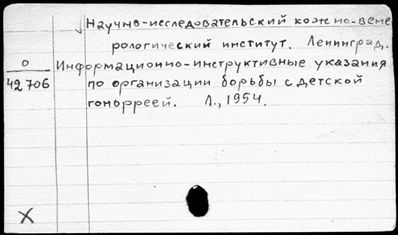 Научно-исследовательский кожно-вене
рологический институт. Ленинград.
О
42706
Информационно-инструктивные указания
по организации борьбы с детской
гонорреей. Л., 1954.
X